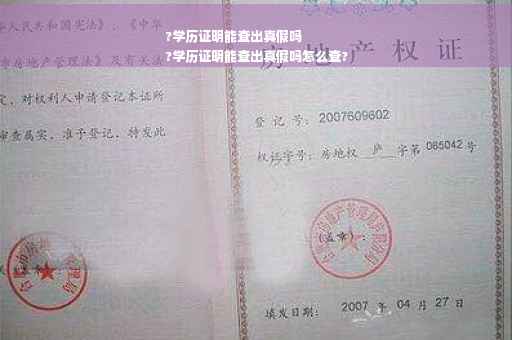 ?学历证明能查出真假吗
?学历证明能查出真假吗怎么查?
华人民共和国宪
市房地产管理法》及有关法
定，对权利人申请登记本证所
审查属实，准予登记，特发此
房地产权证
登 记 号：2007609602
权证字号：房地权 庐 字第 065042 号
(盖章)：
填发日期：2007 年 04 月 27 日